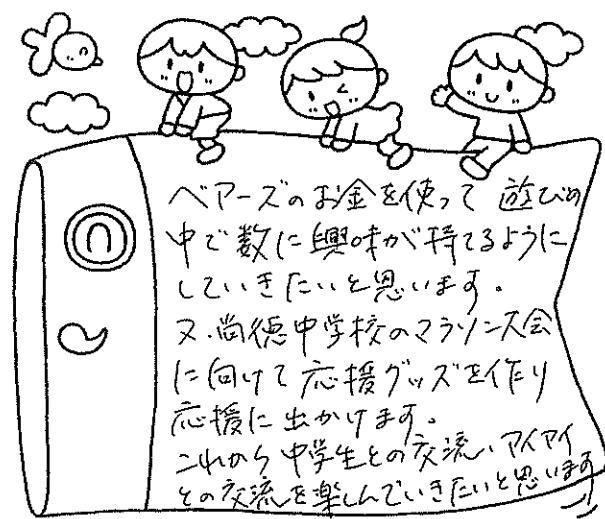 ベアーズのお金を使って 遊びの
中で数に興味が持てるように
していきたいと思います。
又、尚徳中学校のマラソン大会
に向けて応援グッズを作り
応援に出かけます。
これから中学生との交流、アイアイ
との交流を楽しんでいきたいと思います